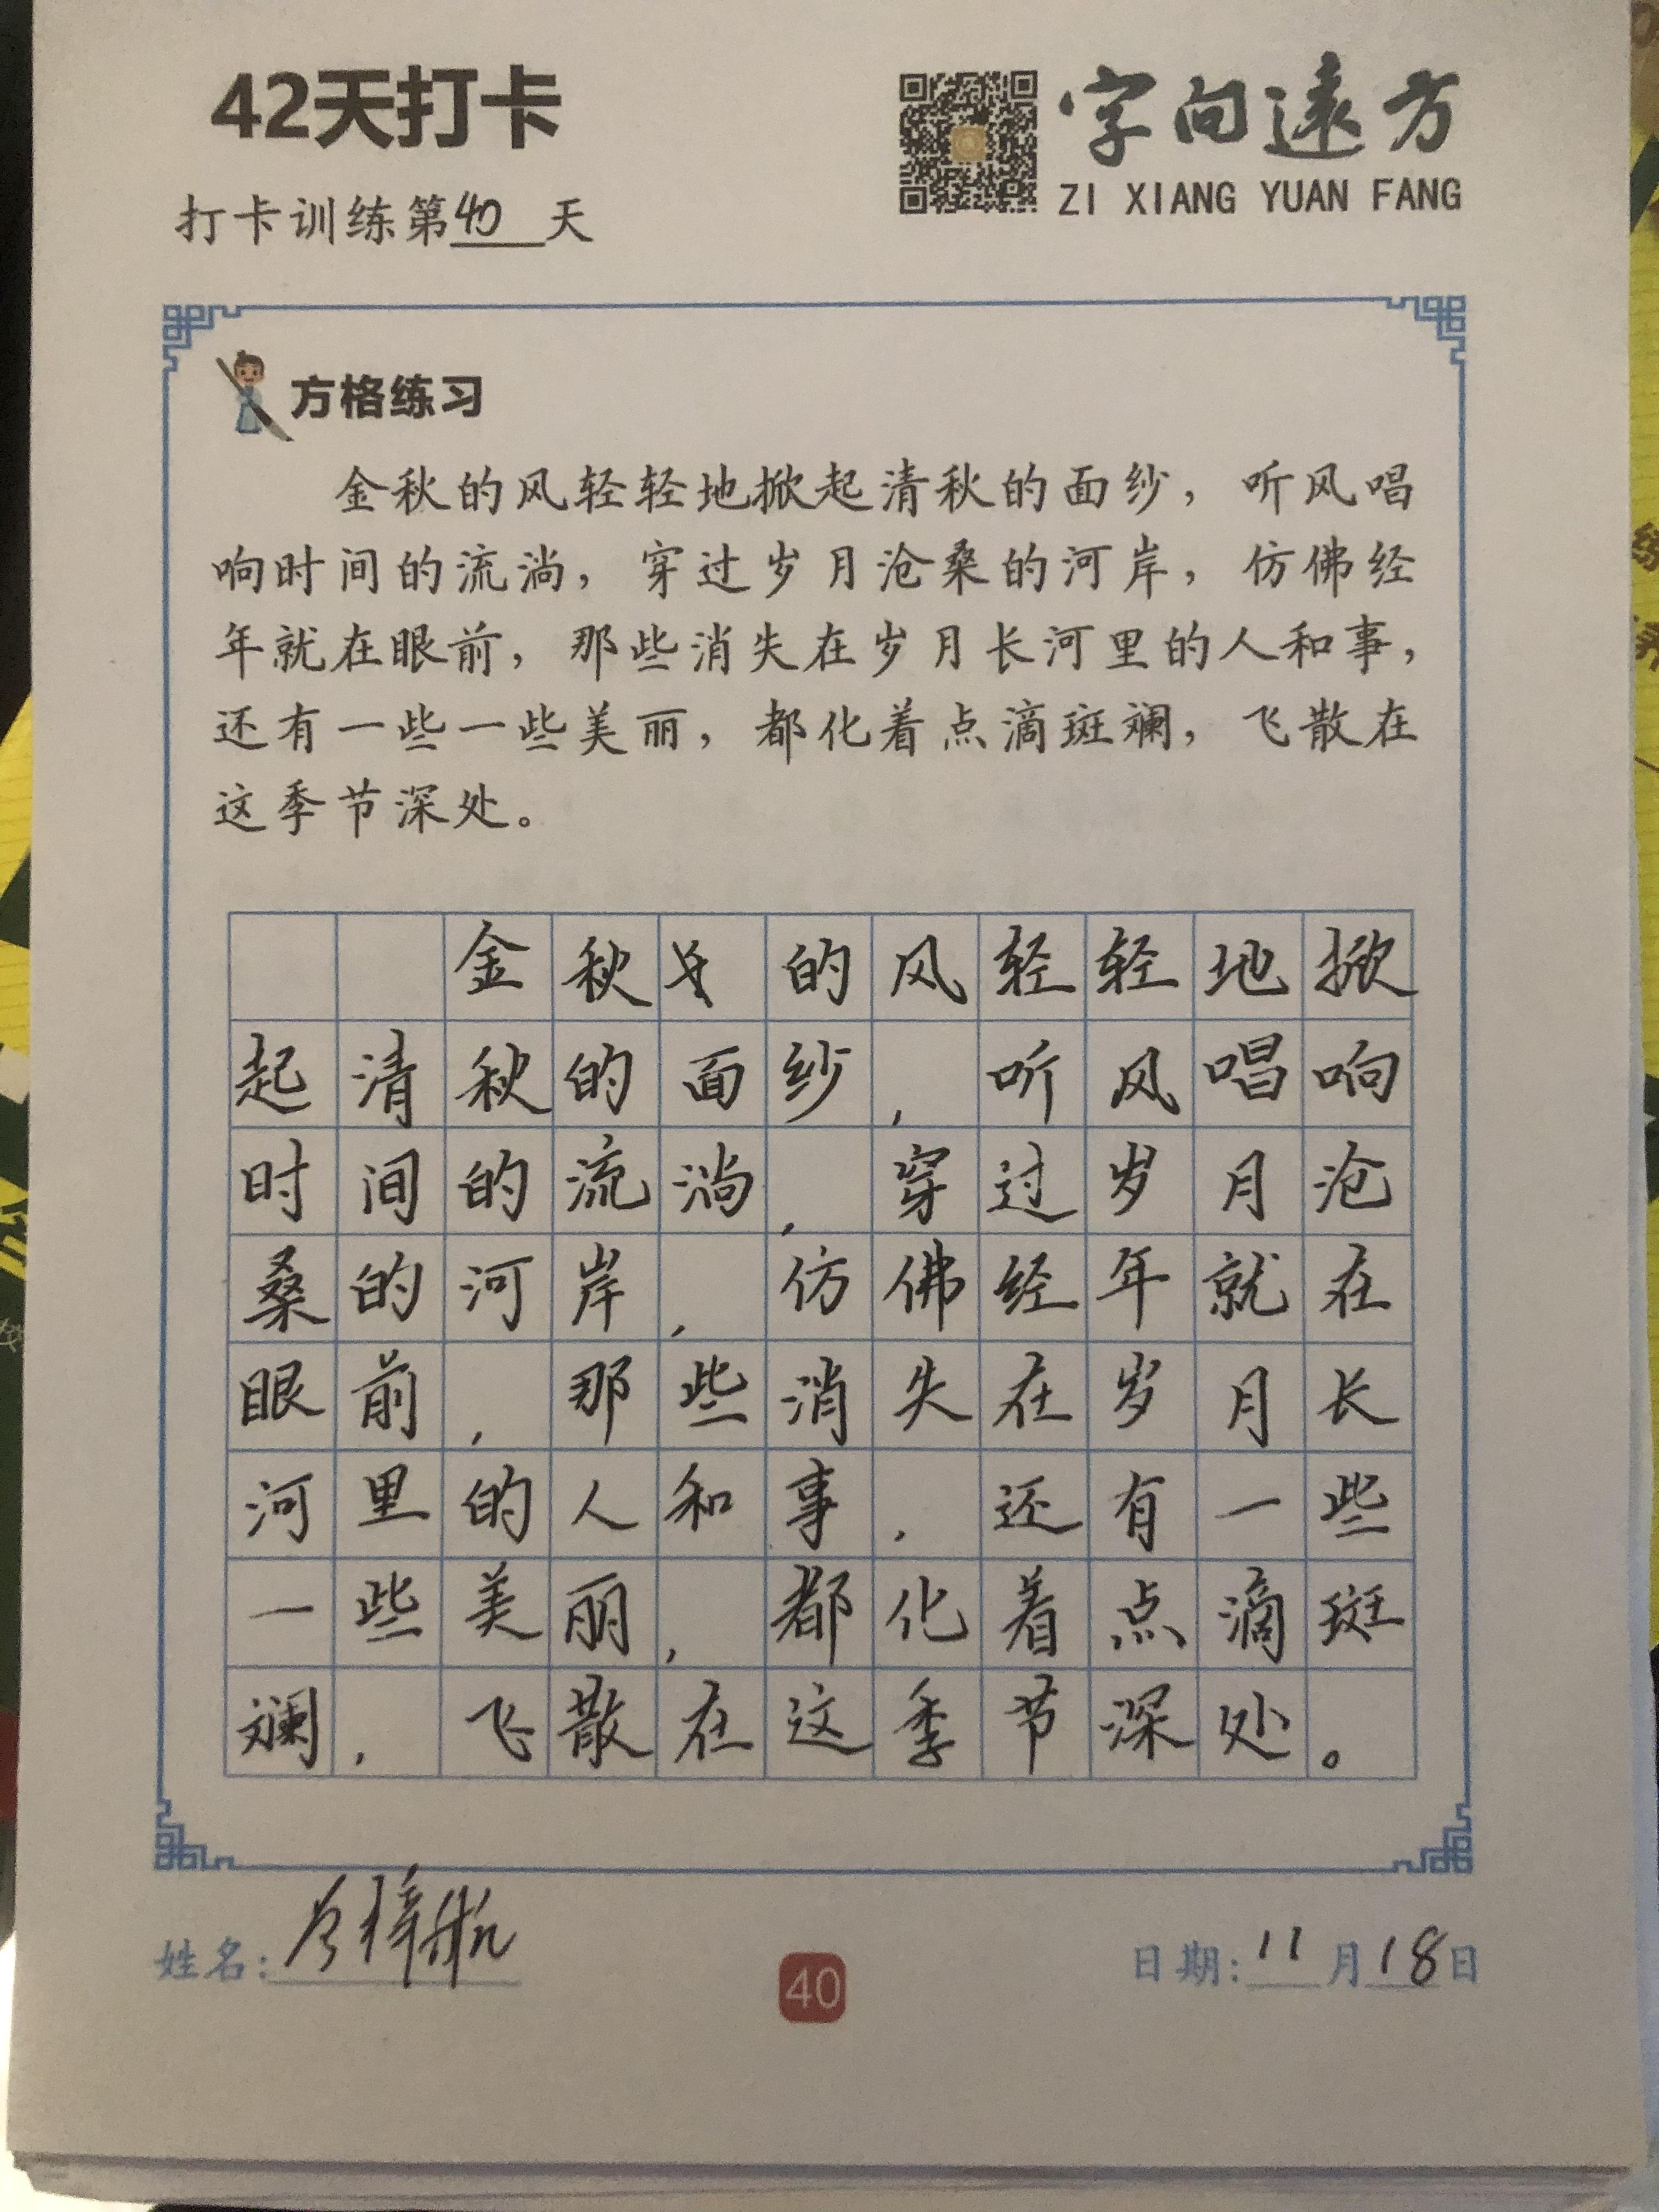 42天打卡
字向遠方
ZI XIANG YUAN FANG
打卡训练第40天
方格练习
金秋的风轻轻地掀起清秋的面纱，听风唱
响时间的流淌，穿过岁月沧桑的河岸，仿佛经
年就在眼前，那些消失在岁月长河里的人和事，
还有一些一些美丽，都化着点滴斑斓，飞散在
这季节深处。
金秋的风轻轻地掀
起清秋的面纱，听风唱响
时间的流淌，穿过岁月沧
桑的河岸，仿佛经年就在
眼前，那些消失在岁月长
河里的人和事，还有一些
一些美丽，都化着点滴斑
斓，飞散在这季节深处。
姓名:
40
日期:11月18日